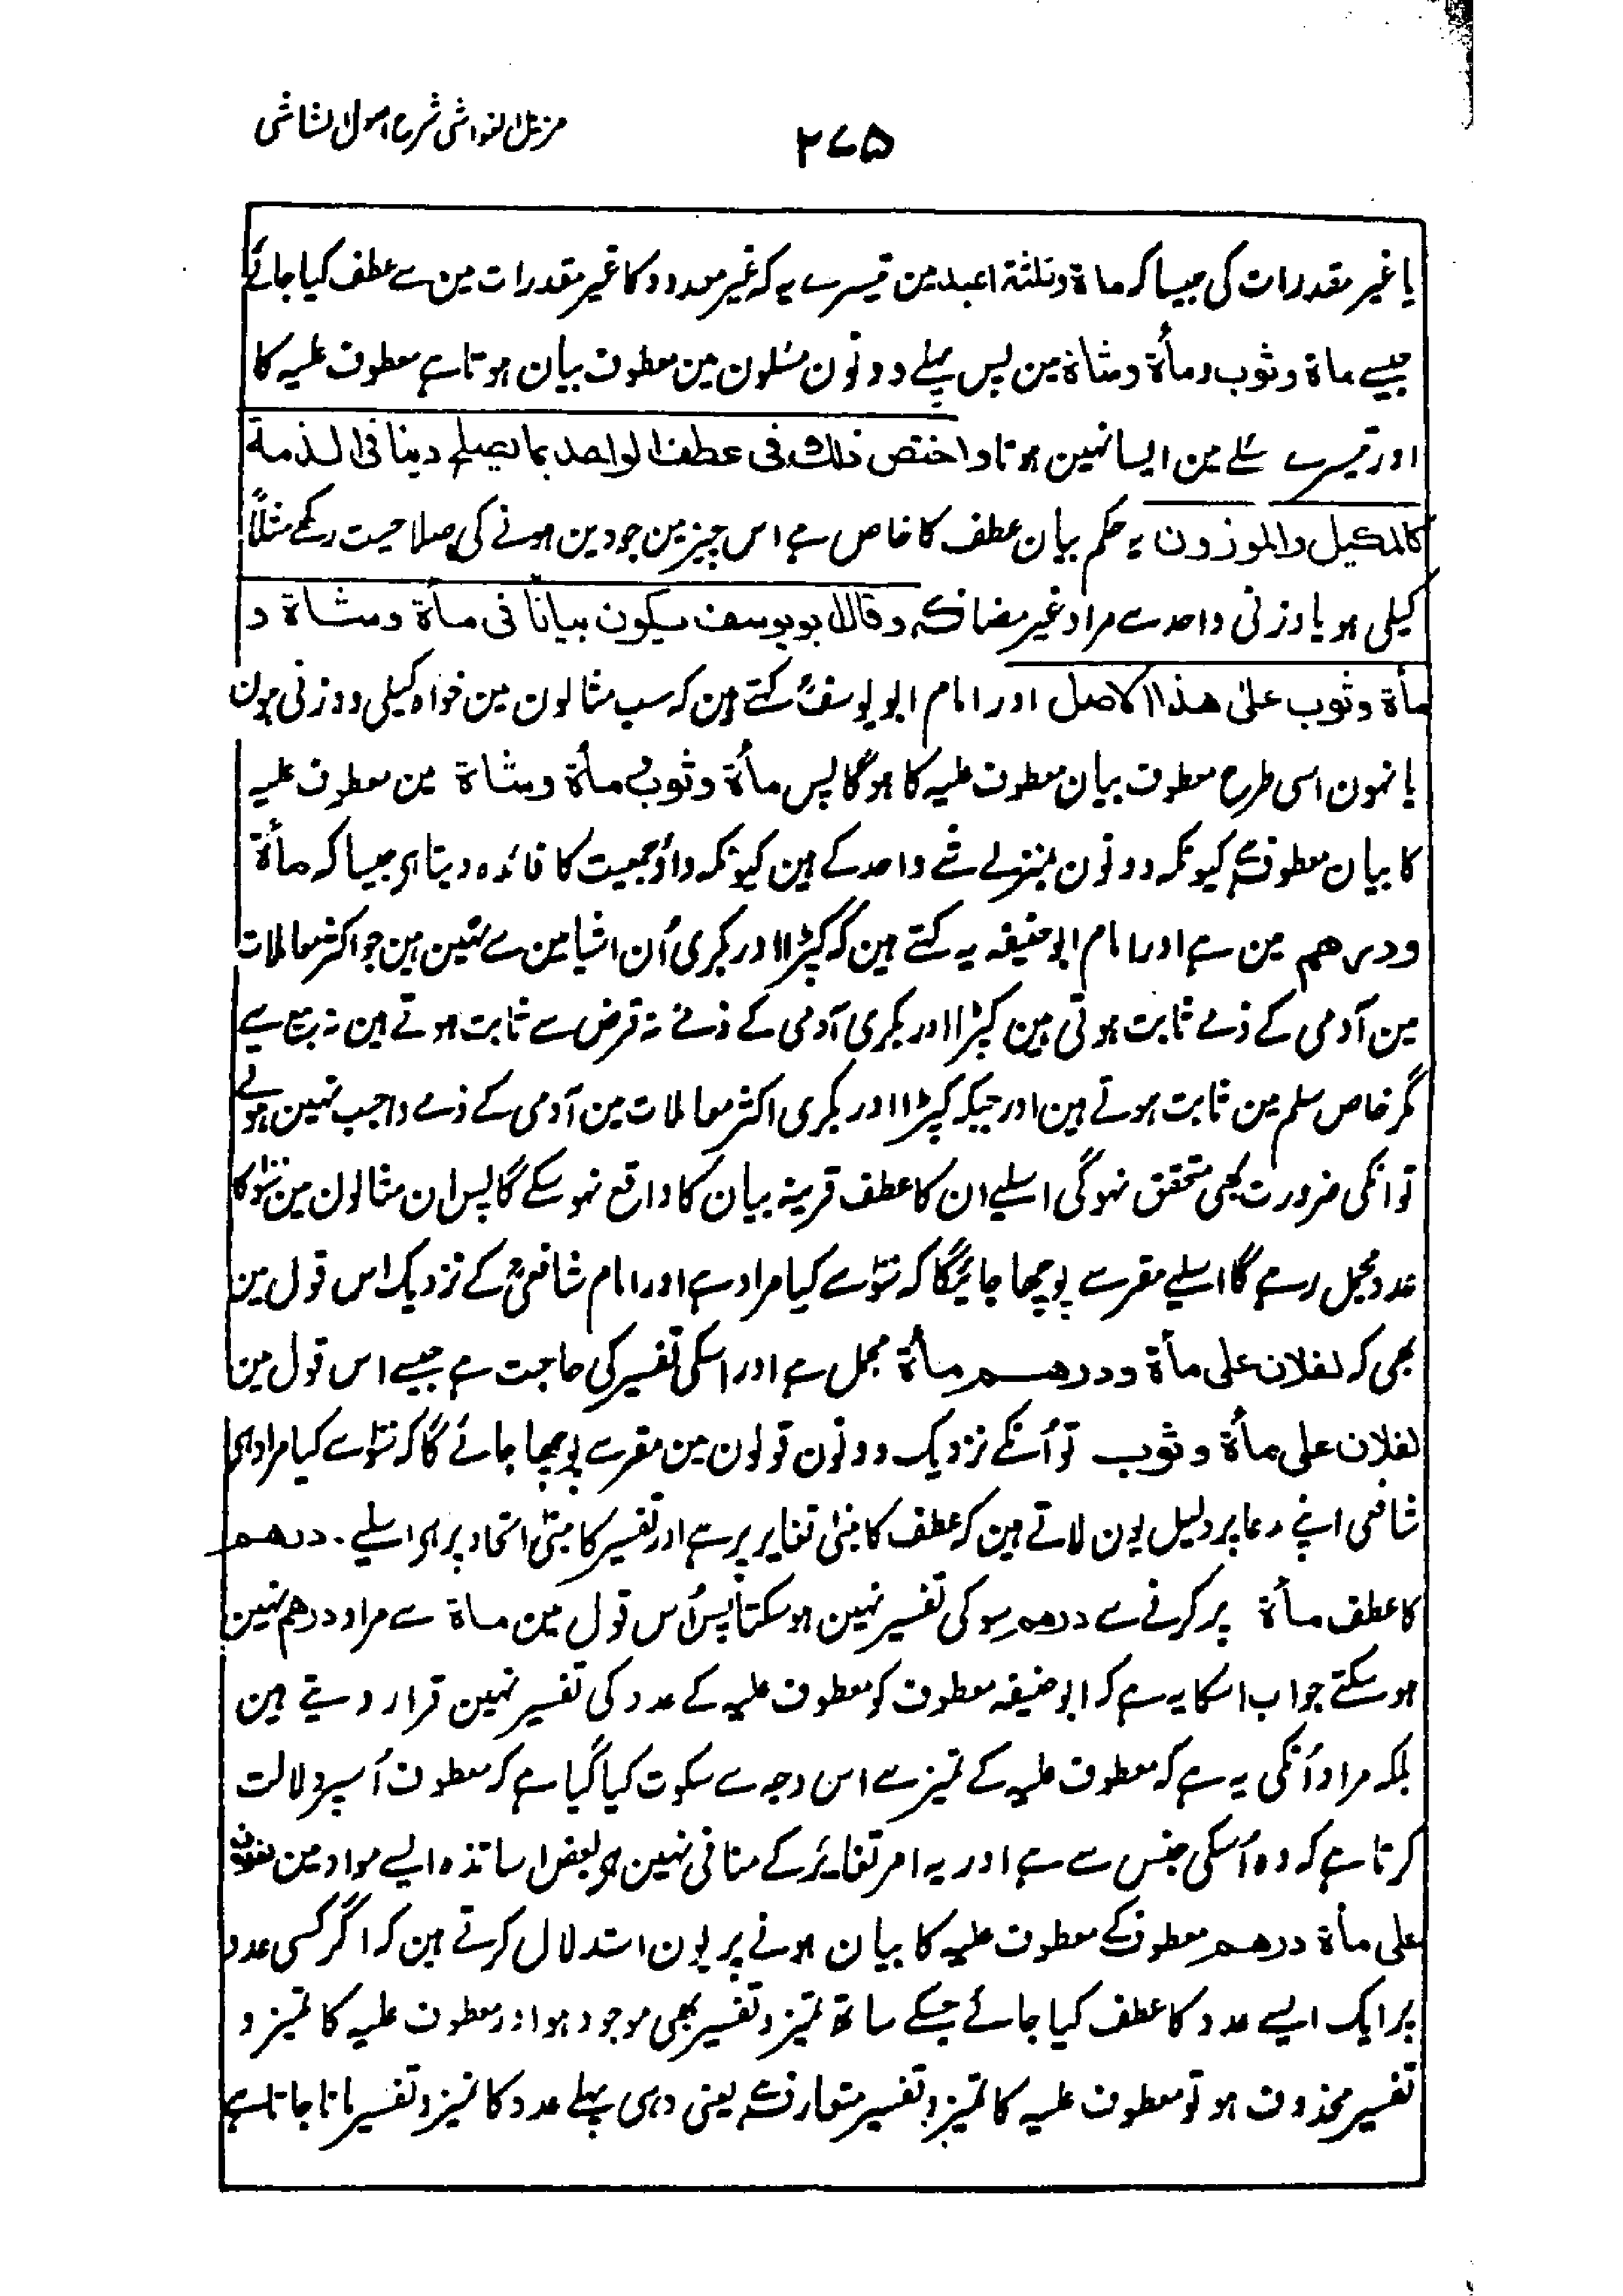 ۲۷۵
مزیل الغواشی شرح اصول الشاشی
یا غیر مقدرات کی جیسا کہ ماة وثلثة اعبد مین تیسرے یہ کہ غیر معدود کا غیر مقدرات مین سے عطف کیا جائے
جیسے ماة وثوب ومأة وشاة مین پس پہلے دونون مسئلون مین معطوف بیان ہوتا ہے معطوف علیہ کا
اور تیسرے مسئلے مین ایسا نہین ہوتا واختص ذلك فی عطف الواحد بما یصلح دینا فی الذمة
کالمکیل والموزون یہ حکم بیان عطف کا خاص ہے اس چیز مین جو دین ہونے کی صلاحیت رکھے مثلاً
کیلی ہو یا وزنی واحد سے مراد غیر مضاف ہے وقال ابو یوسف یکون بیانا فی مأة وشاة و
مأة وثوب علیٰ هذا الاصل اور امام ابو یوسفؒ کہتے ہین کہ سب مثالون مین خواہ کیلی ووزنی ہون
یا نہون اسی طرح معطوف بیان معطوف علیہ کا ہوگا پس مأة وثوب مأة وشاة مین معطوف علیہ
کا بیان معطوف ہے کیونکہ دونون بمنزلے شے واحد کے ہین کیونکہ واؤ جمعیت کا فائدہ دیتا ہی جیسا کہ مأة
ودرهم مین ہے اور امام ابو حنیفہ یہ کہتے ہین کہ کپڑا اور بکری اُن اشیا مین سے نہین ہین جو اکثر معاملات
مین آدمی کے ذمے ثابت ہوتی ہین کپڑا اور بکری آدمی کے ذمے نہ قرض سے ثابت ہوتے ہین نہ بیع سے
مگر خاص سلم مین ثابت ہوتے ہین اور جبکہ کپڑا اور بکری اکثر معاملات مین آدمی کے ذمے واجب نہین ہوتے
تو انکی ضرورت بھی متحقق نہوگی اسلیے ان کا عطف قرینہ بیان کا واقع نہو سکے گا پس ان مثالون مین سَو کا
عدد مجمل رہے گا اسلیے مقر سے پوچھا جائیگا کہ سَو سے کیا مراد ہے اور امام شافعیؒ کے نزدیک اس قول مین
بھی کہ لفلان علی مأة ودرهم مأة مجمل ہے اور اسکی تفسیر کی حاجت ہے جیسے اس قول مین
لفلان علی مأة وثوب تو اُنکے نزدیک دونون قولون مین مقر سے پوچھا جائے گا کہ سَو سے کیا مراد ہی
شافعی اپنے مدعا پر دلیل یون لاتے ہین کہ عطف کا مبنیٰ تغایر پر ہے اور تفسیر کا مبنیٰ اتحاد پر ہی اسلیے درهم
کا عطف مأة پر کرنے سے درهم سو کی تفسیر نہین ہوسکتا پس اُس قول مین ماة سے مراد درهم نہین
ہوسکتے جواب اسکا یہ ہے کہ ابو حنیفہ معطوف کو معطوف علیہ کے عدد کی تفسیر نہین قرار دیتے ہین
بلکہ مراد اُنکی یہ ہے کہ معطوف علیہ کے تمیز سے اس وجہ سے سکوت کیا گیا ہے کہ معطوف اُسپر دلالت
کرتا ہے کہ وہ اُسکی جنس سے ہے اور یہ امر تغایر کے منافی نہین ہی بعض اساتذہ ایسے مواد مین لفلان
علی مأة درهم معطوف کے معطوف علیہ کا بیان ہونے پر یون استدلال کرتے ہین کہ اگر کسی عدد
پر ایک ایسے عدد کا عطف کیا جائے جسکے ساتھ تمیز وتفسیر بھی موجود ہو اور معطوف علیہ کا تمیز و
تفسیر محذوف ہو تو معطوف علیہ کا تمیز وتفسیر متعارف ہے یعنی وہی پہلے عدد کا تمیز وتفسیر مانا جاتا ہے